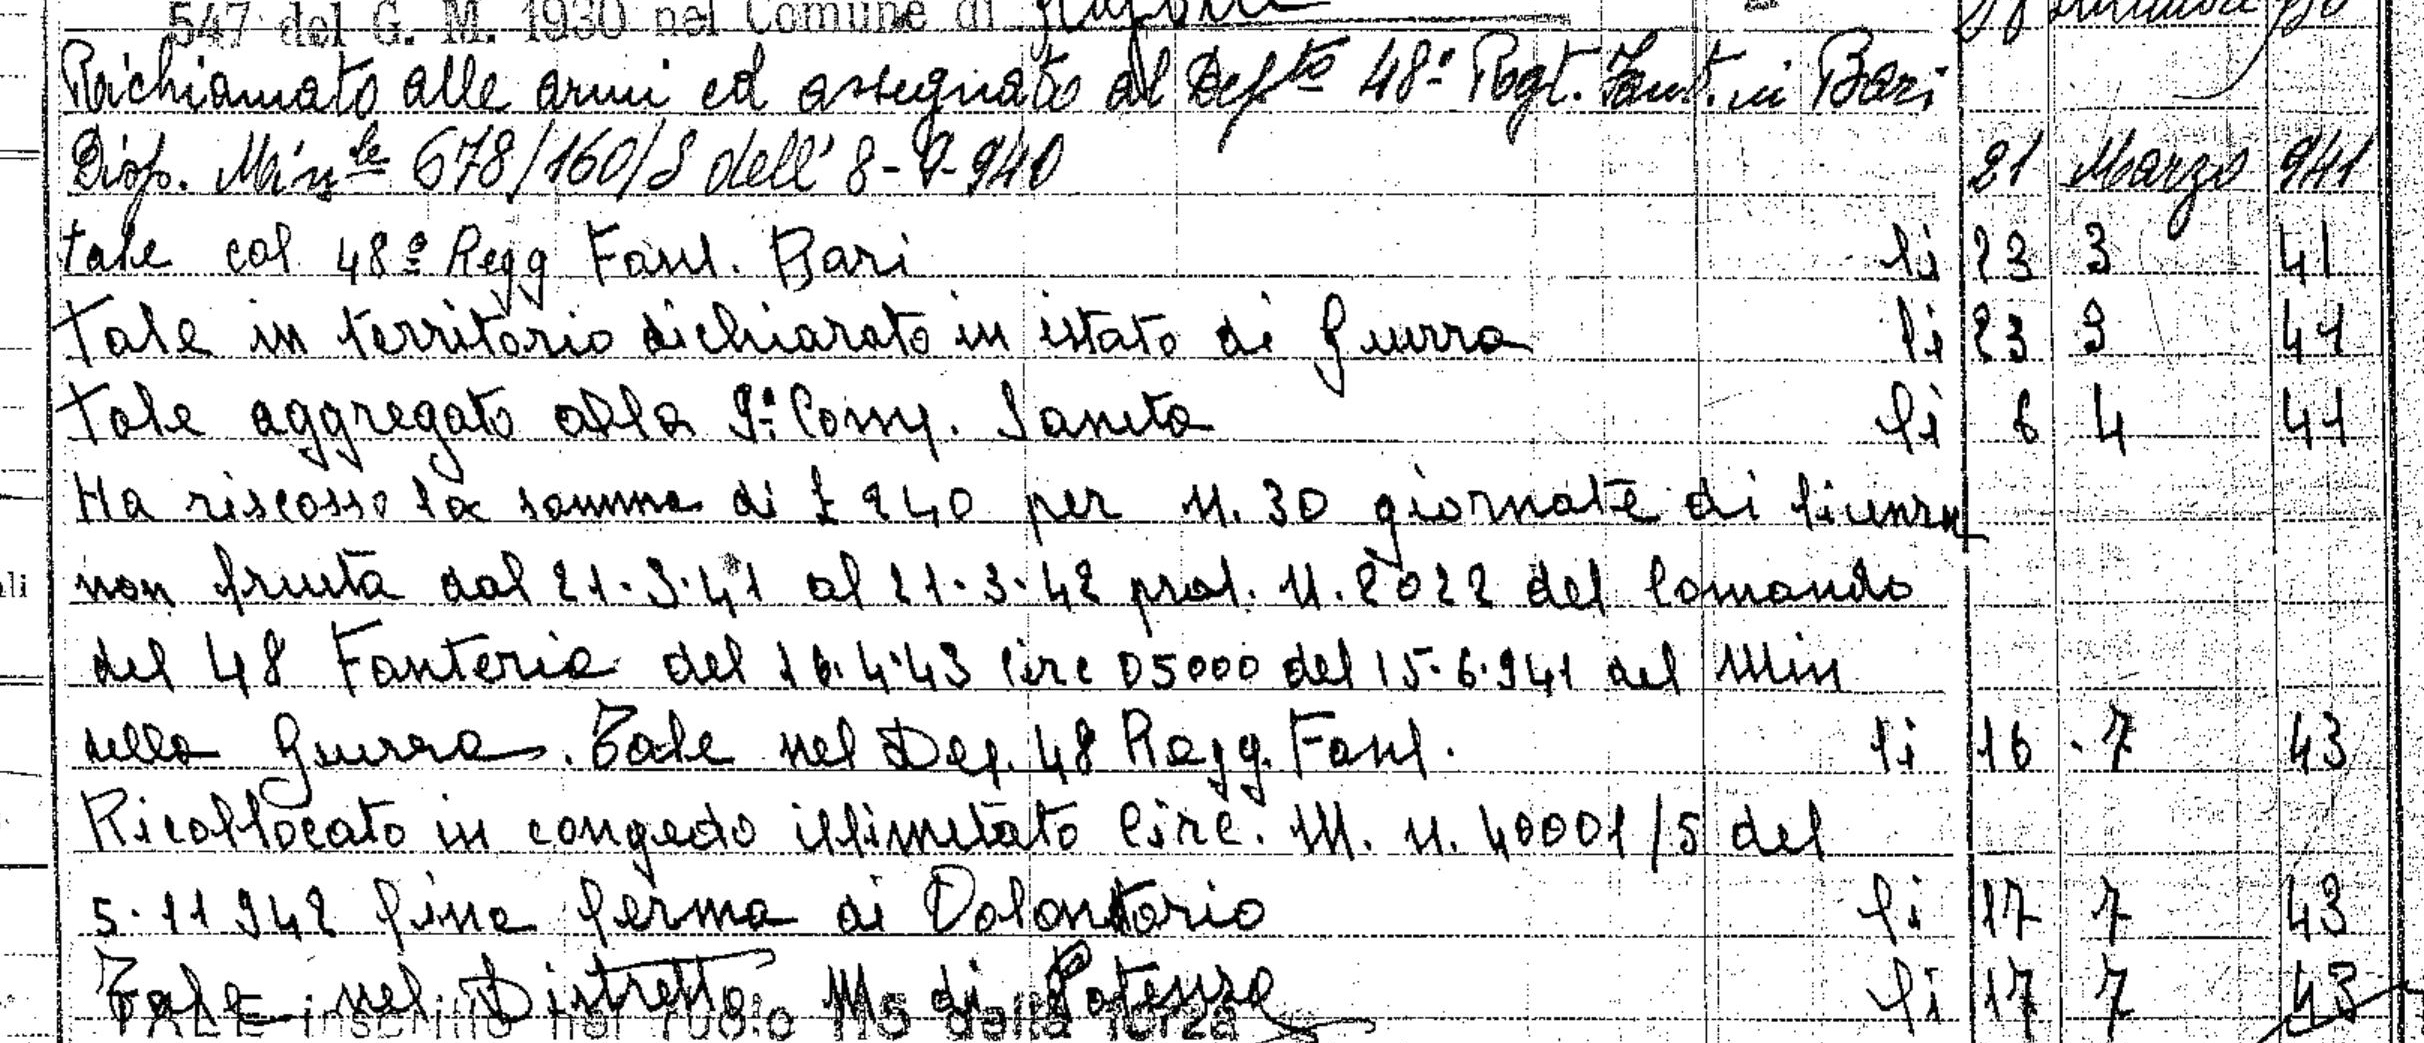 547 del G. M. 1930 nel Comune di
Richiamato alle armi ed assegnato al Depto 48° Regt. Fant. in Bari
Disp. Minle 678/160/S dell' 8-9-940 21 Marzo 941
tale col 48° Regg Fant. Bari li 23 3 41
Tale in territorio dichiarato in istato di Guerra li 23 3 41
Tale aggregato alla 9a Comp. Sanita li 6 4 41
Ha riscosso la somma di £ 240 per n. 30 giornate di licenza
non fruita dal 21.3.41 al 21.3.42 prot. n. 2022 del Comando
del 48 Fanteria del 16.4.43 Circ 05000 del 15.6.941 del Min
della Guerra. Tale nel Dep. 48 Regg. Fant. li 16 . 7 43
Ricollocato in congedo illimitato Circ. M. n. 40001/5 del
5.11 942 fine ferma di Volontario li 17 7 43
Tale nel Distretto M di Potenza li 17 7 43
TALE inscritto nel ruolo 115 della forza